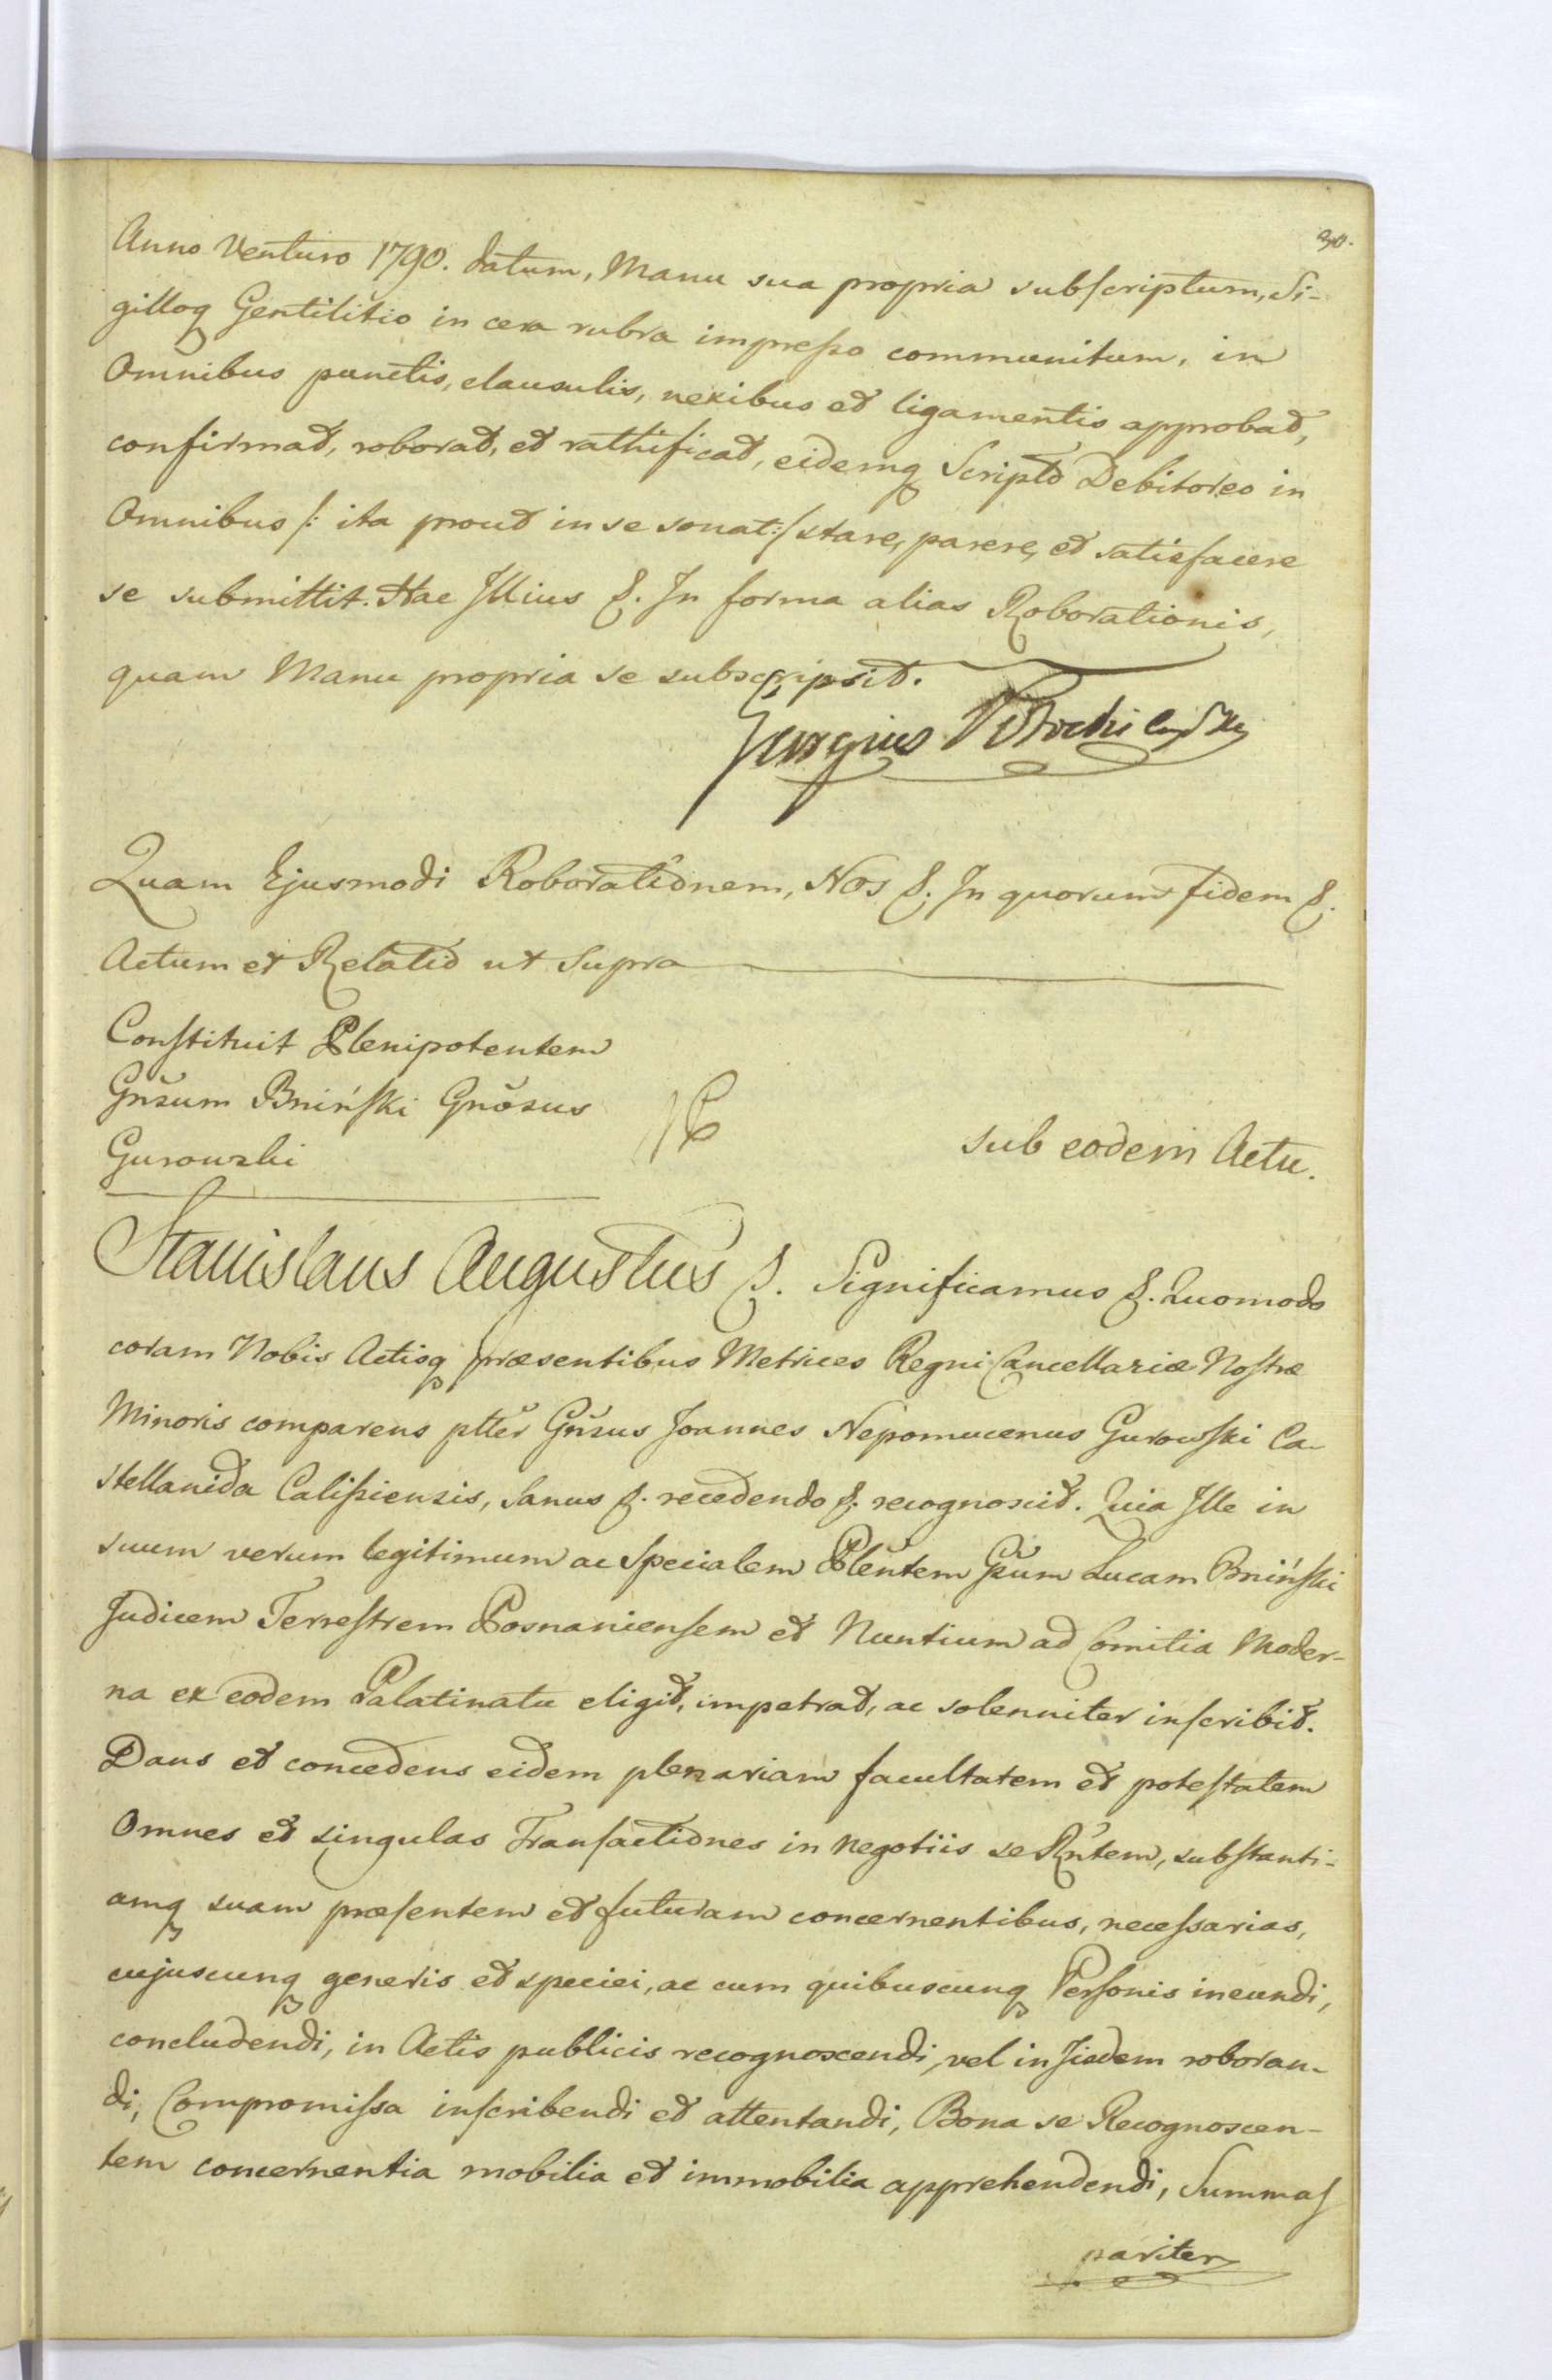 30.
Anno Venturo 1790. datum, Manu sua propria subscriptum, Si-
gilloq Gentilitio in cera rubra impresso communitum, in
Omnibus punctis, clausulis, nexibus et ligamentis approbat,
confirmat, roborat, et rathificat, eidemq Scripto Debitoreo in
Omnibus /: ita prout in se sonat :/ stare, parere, et satisfacere
se submittit. Hac Illius &. In forma alias Roborationis,
quam Manu propria se subscripsit.
Quam Ejusmodi Roborationem, Nos &. In quorum fidem &.
Actum et Relatio ut Supra
Constituit Plenipotentem
Gnsum Bniński Gnosus
Gurowski
sub eodem Actu.
Stanislaus Augustus &. Significamus &. Quomodo
coram Nobis Actisq præsentibus Metrices Regni Cancellariæ Nostræ
Minoris comparens pltter Gnsus Joannes Nepomucenus Gurowski Ca-
stellanida Calissiensis, Sanus &. recedendo &. recognoscit. Quia Ille in
suum verum legitimum ac Specialem Plentem Gsum Lucam Bniński
Judicem Terrestrem Posnaniensem et Nuntium ad Comitia Moder-
na ex eodem Palatinatu eligit, impetrat, ac solenniter inscribit.
Dans et concedens eidem plenariam facultatem et potestatem
Omnes et singulas Transactiones in negotiis se Rntem, substanti-
amq suam præsentem et futuram concernentibus, necessarias,
cujuscunq generis et speciei, ac cum quibuscunq Personis ineundi,
concludendi, in Actis publicis recognoscendi, vel in Iisdem roboran-
di, Compromissa inscribendi et attentandi, Bona se Recognoscen-
tem concernentia mobilia et immobilia apprehendendi, Summas
pariter